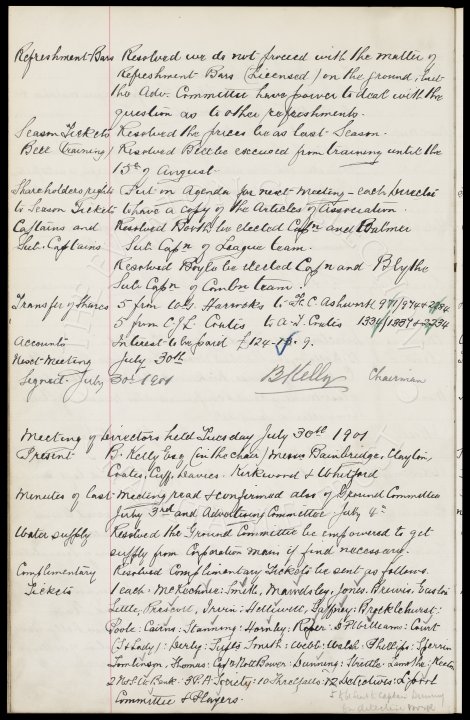 Refreshment Bars Resolved we do not proceed with the matter of
Refreshment Bars (Licensed) on the ground, but
the Adv. Committee have power to deal with the
question as to other refreshments.
Season Tickets Resolved the prices be as last Season.
Bell (training) Resolved Bell be excused from training until the
13th of August
Shareholders rights Put on Agenda for next Meeting - each Director
to Season Tickets to have a copy of the Articles of Association.
Captains and Resolved Booth be elected Capn and Balmer
Sub. Captains Sub Capn of League team.
Resolved Boyle be elected Capn and Blythe
Sub Capn of Combn team.
Transfer of Shares 5 from W.G. Harrocks to C. Ashworth
5 from C.J.L. Coates, to A.T. Coates
Accounts Interest to be paid £124.
Next Meeting July 30th
Signed. July 30 1901 B Kelly Chairman
Meeting of Directors held Tuesday July 30th 1901
Present B. Kelly Esq (in the chair) Messrs Bainbridge, Clayton,
Coates, Cuff, Davies, Kirkwood & Whitford
Minutes of last meeting read & confirmed also of Ground Committee
July 3rd and Advertising Committee July 4th
Water supply Resolved the Ground Committee be empowered to get
supply from Corporation mains if find necessary.
Complimentary Resolved Complimentary Tickets be sent as follows.
Tickets 1 each. Smith, Mawdsley, Jones, Brewis,
Irvin: Helliwell, Gaffney: Brocklehurst:
Poole: Cairns: Stanning: Hornby: Roper: Williams: Court
(St Lady): Derby: Webb: Walsh: Phillips:
Tomlinson, Thomas: Bower: Dunning:
Bank: Society: 10 Threlfalls: 12 Detectives:
Committee & Players.